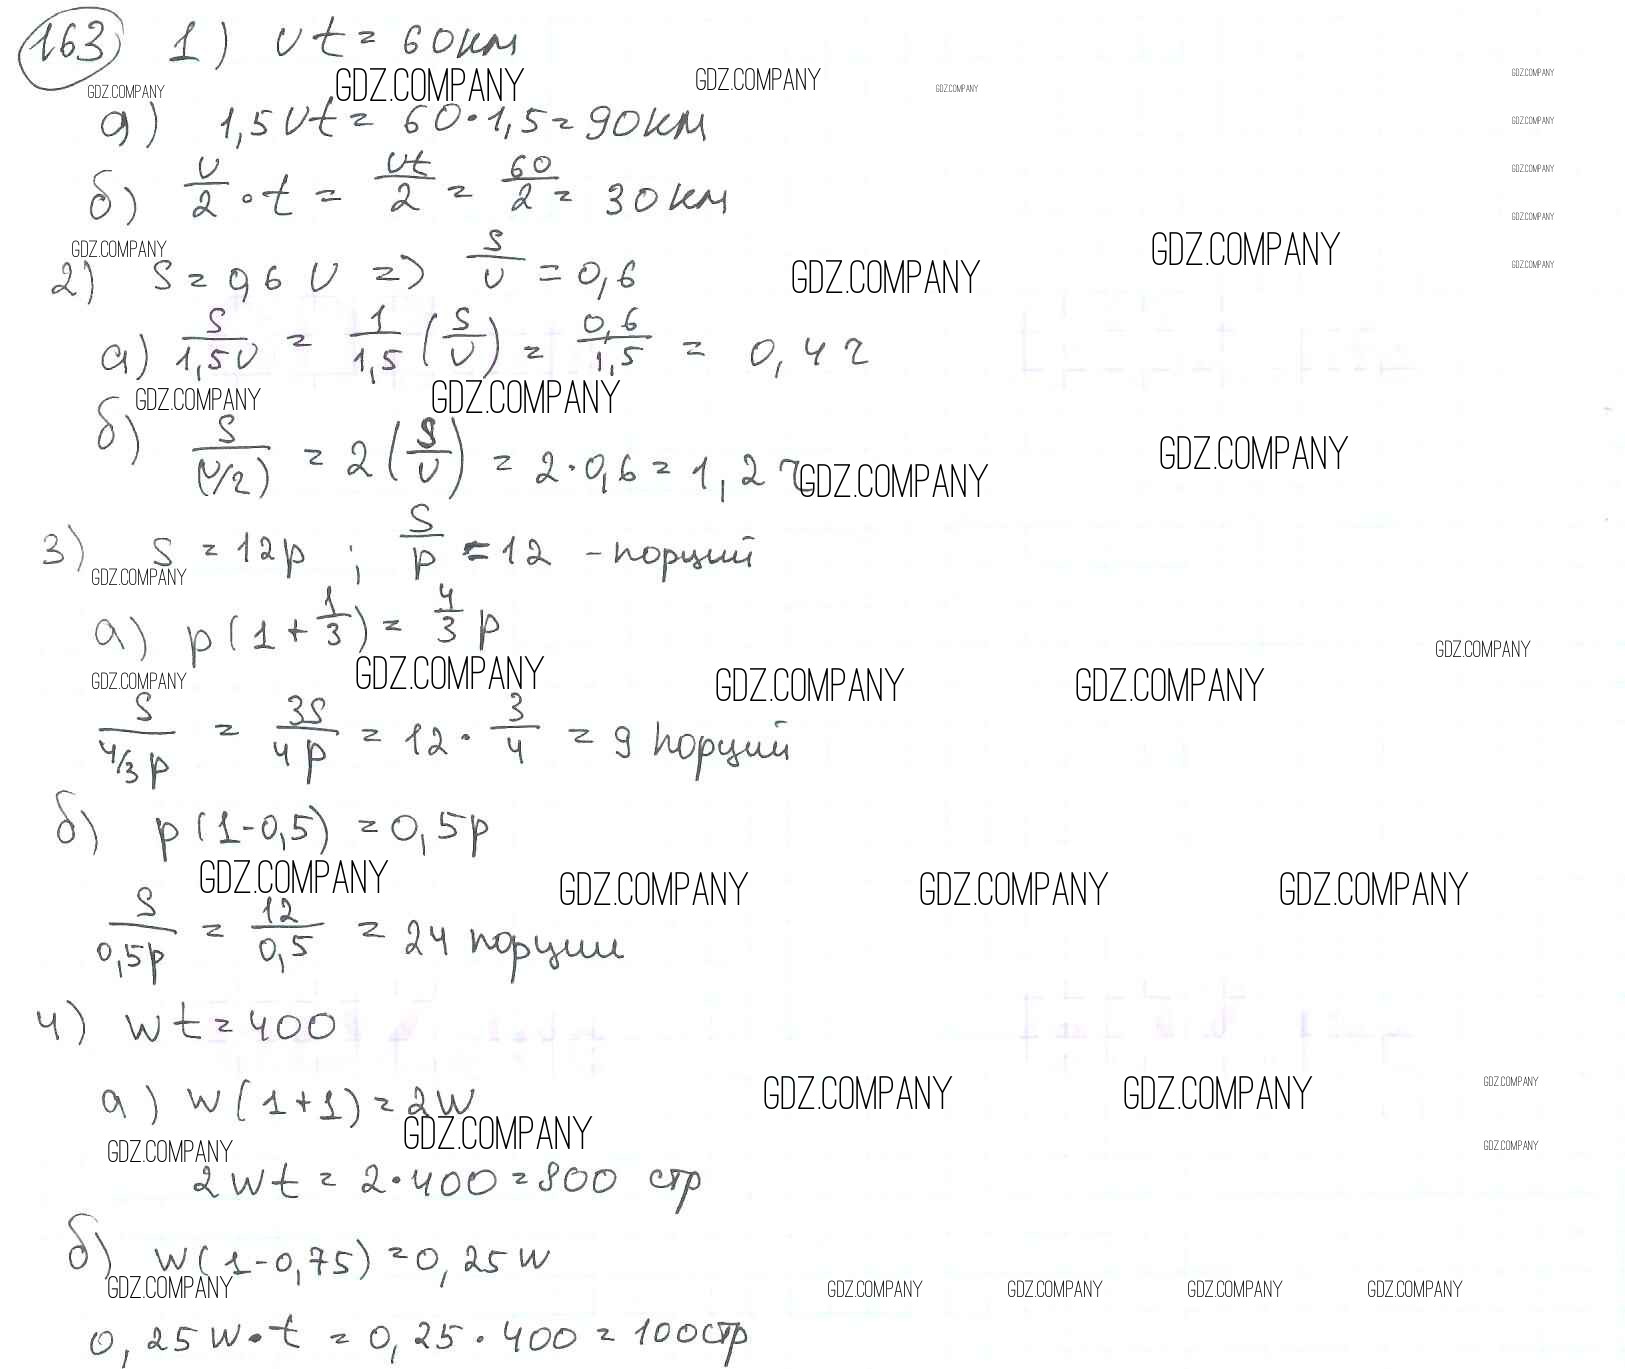 163 1) vt = 60 км
GDZ.COMPANY GDZ.COMPANY GDZ.COMPANY GDZ.COMPANY GDZ.COMPANY
а) 1,5 vt = 60 · 1,5 = 90 км GDZ.COMPANY
б) v/2 · t = vt/2 = 60/2 = 30 км GDZ.COMPANY
GDZ.COMPANY
GDZ.COMPANY GDZ.COMPANY GDZ.COMPANY GDZ.COMPANY
2) S = 0,6 v => S/v = 0,6
а) S/1,5v = 1/1,5 (S/v) = 0,6/1,5 = 0,4 ч
GDZ.COMPANY GDZ.COMPANY
б) S/(v/2) = 2 (S/v) = 2 · 0,6 = 1,2 ч GDZ.COMPANY GDZ.COMPANY
3) S = 12p ; S/p = 12 - порций
GDZ.COMPANY
а) p (1 + 1/3) = 4/3 p
GDZ.COMPANY
GDZ.COMPANY GDZ.COMPANY GDZ.COMPANY GDZ.COMPANY
S/4/3 p = 3S/4p = 12 · 3/4 = 9 порций
б) p (1 - 0,5) = 0,5p
GDZ.COMPANY GDZ.COMPANY GDZ.COMPANY GDZ.COMPANY
S/0,5p = 12/0,5 = 24 порции
4) wt = 400
а) w (1 + 1) = 2w GDZ.COMPANY GDZ.COMPANY GDZ.COMPANY
GDZ.COMPANY GDZ.COMPANY GDZ.COMPANY
2wt = 2 · 400 = 800 стр
б) w (1 - 0,75) = 0,25 w
GDZ.COMPANY GDZ.COMPANY GDZ.COMPANY GDZ.COMPANY GDZ.COMPANY
0,25 w · t = 0,25 · 400 = 100 стр